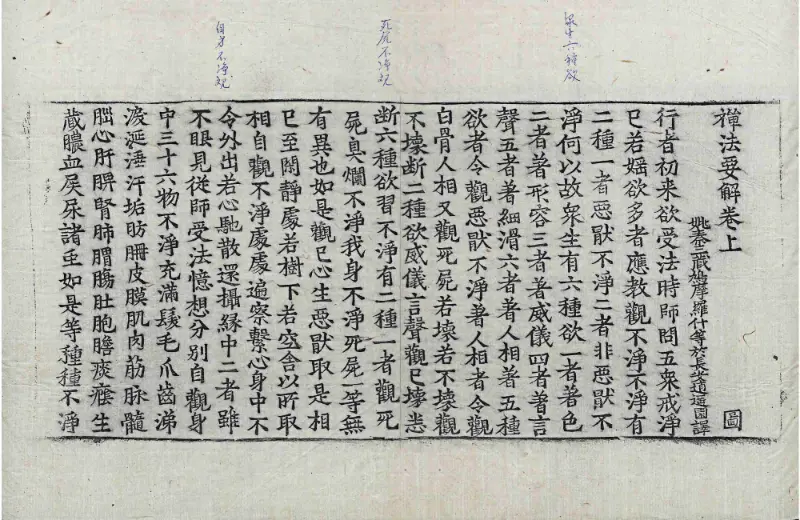 众生六種欲
死屍不淨观
自身不淨观
禪法要解卷上
姚秦三藏鳩摩羅什等於長安逍遥園譯
圖
行者初来欲受法時師問五衆戒淨
已若婬欲多者應教觀不淨不淨有
二種一者惡猒不淨二者非惡猒不
淨何以故衆生有六種欲一者著色
二者著形容三者著威儀四者著言
聲五者著細滑六者著人相著五種
欲者令觀惡猒不淨著人相者令觀
白骨人相又觀死屍若壞若不壞觀
不壞断二種欲威儀言聲觀已壞悉
断六種欲習不淨有二種一者觀死
屍臭爛不淨我身不淨死屍一等無
有異也如是觀已心生惡猒取是相
已至閑静處若樹下若空舍以所取
相自觀不淨處處遍察繫心身中不
令外出若心馳散還攝緣中二者雖
不眼見從師受法憶想分別自觀身
中三十六物不淨充滿髮毛爪齒涕
淚涎唾汗垢肪𦙽皮膜肌肉筋脉髓
腦心肝脾腎肺胃腸肚胞膽痰癊生
藏膿血屎尿諸虫如是等種種不淨